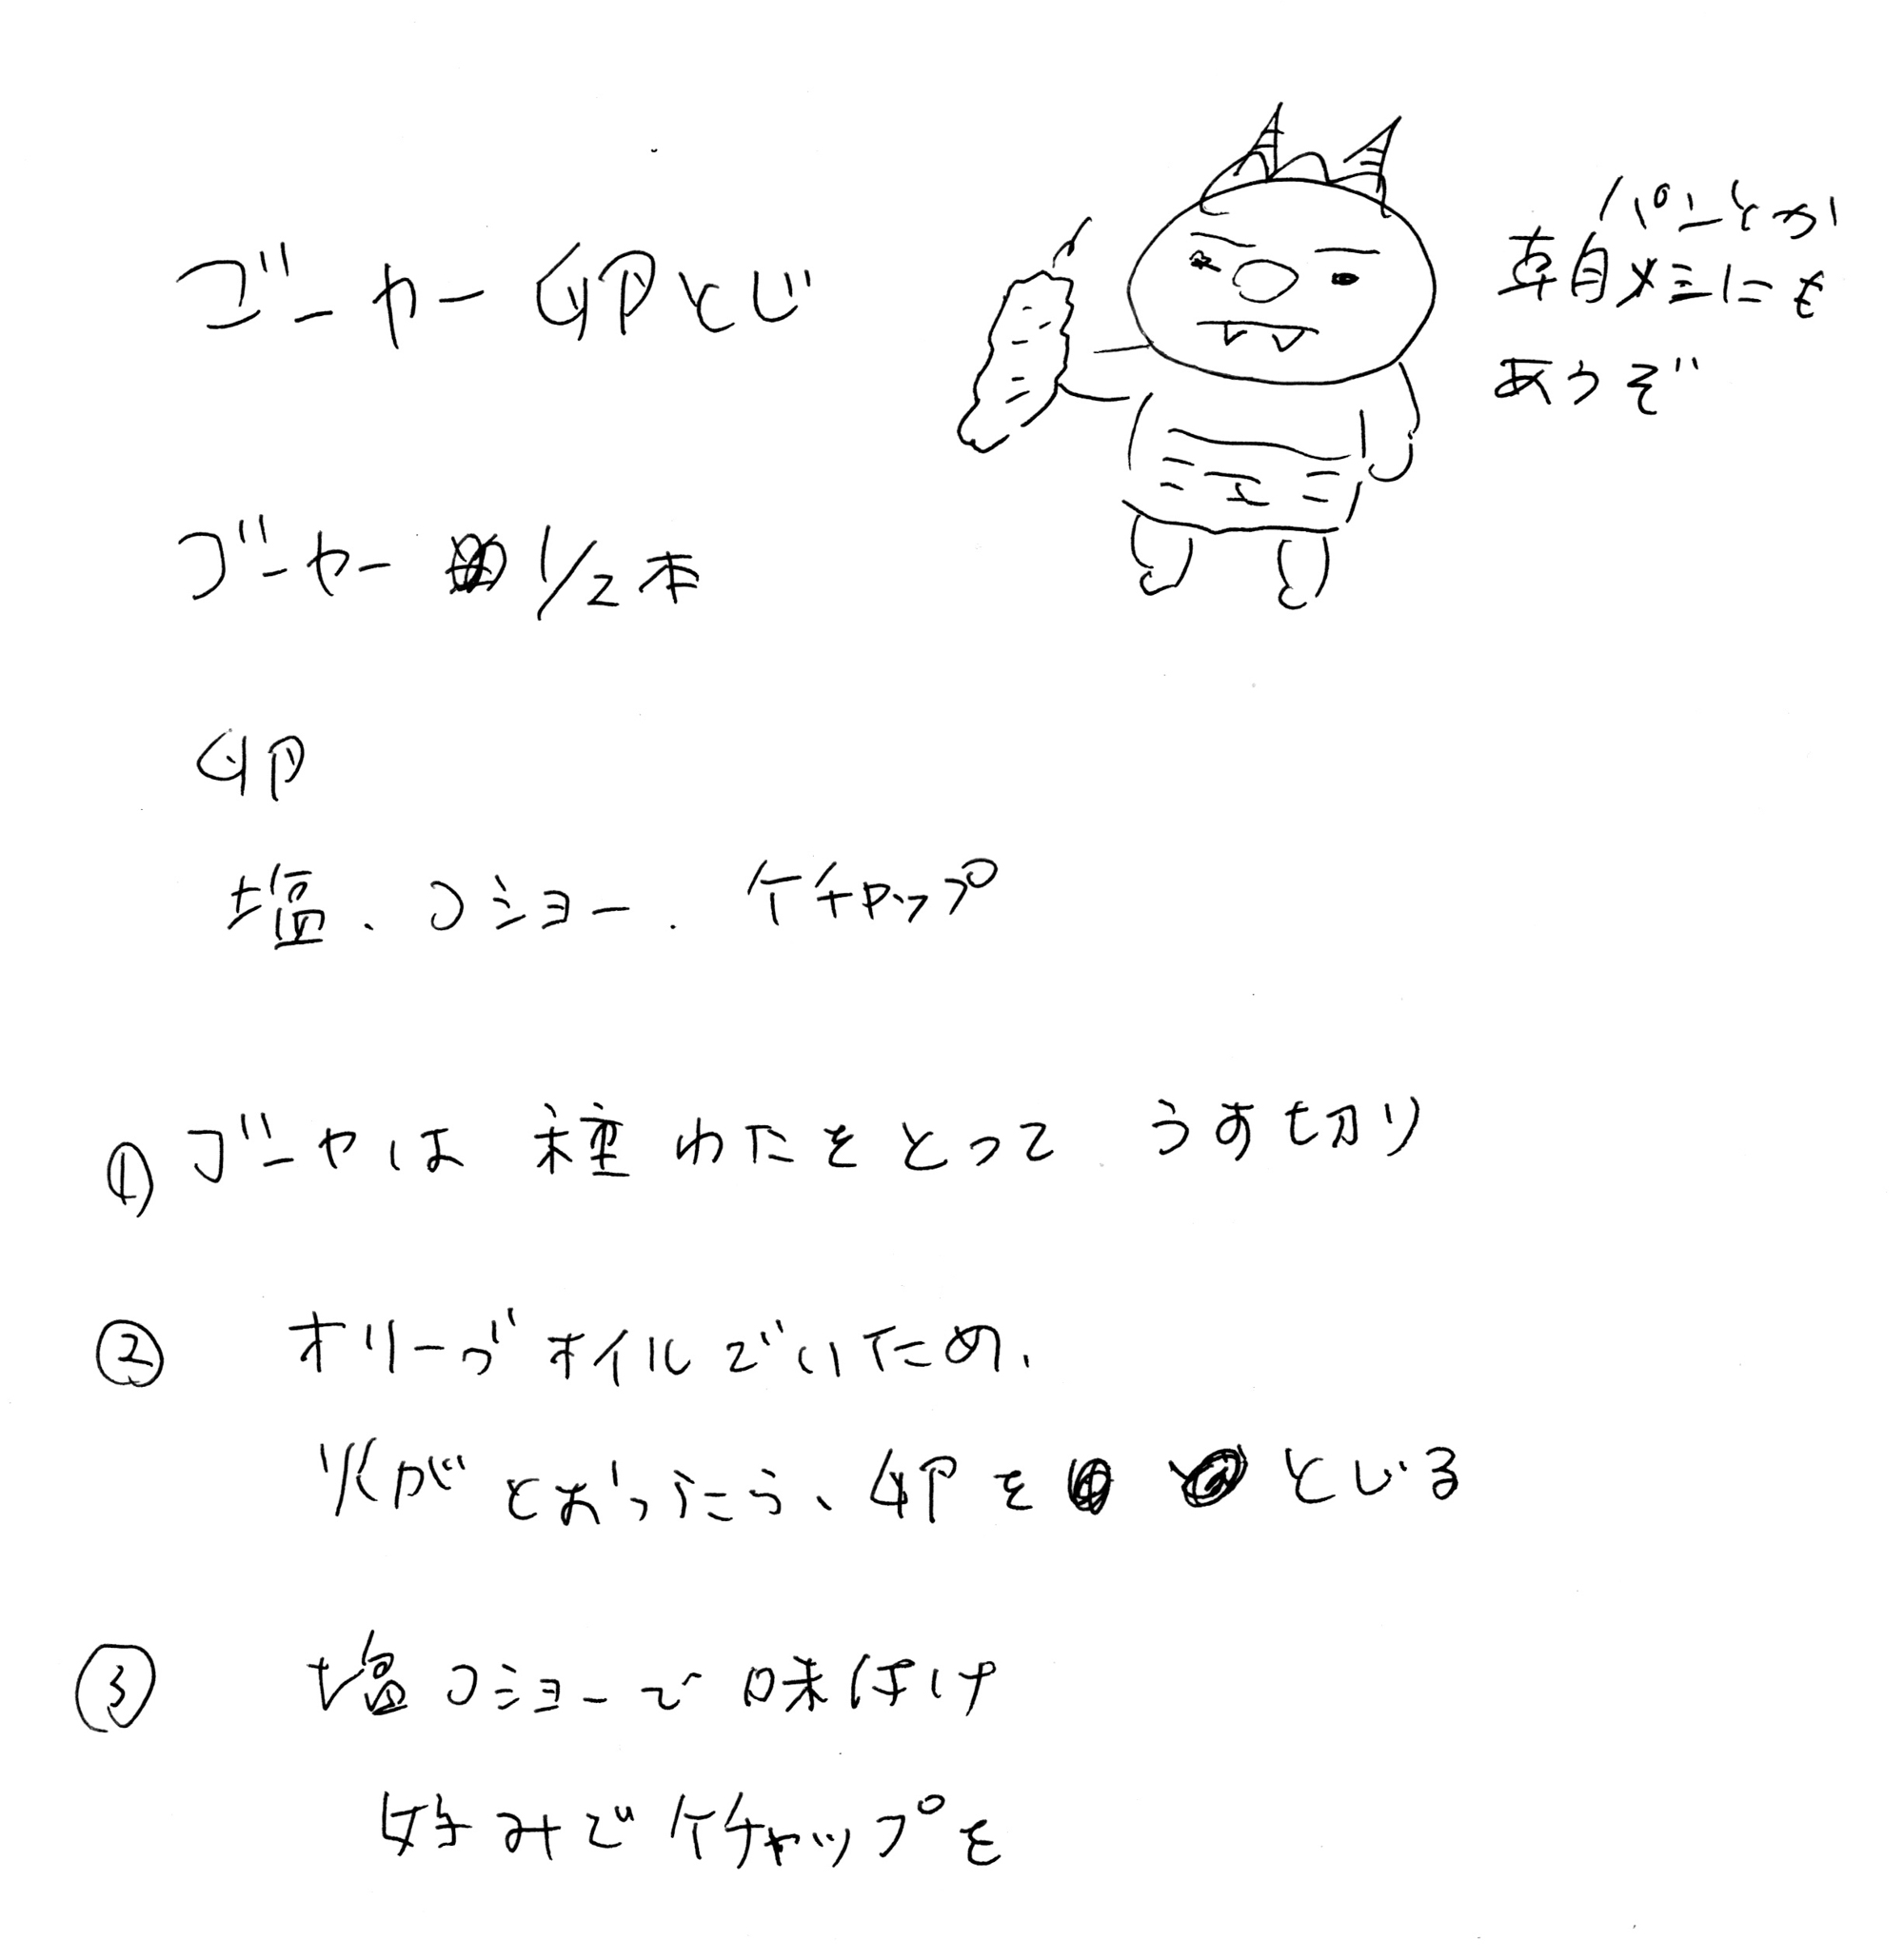 ゴーヤー卵とじ
パンとか
朝メシにも
あうぞ
ゴーヤー 1/2本
卵
塩、コショー、ケチャップ
① ゴーヤは 種わたをとって うす切り
② オリーブオイルでいため、
火がとおったら、卵をとじる
③ 塩コショーで味付け
好みでケチャップを